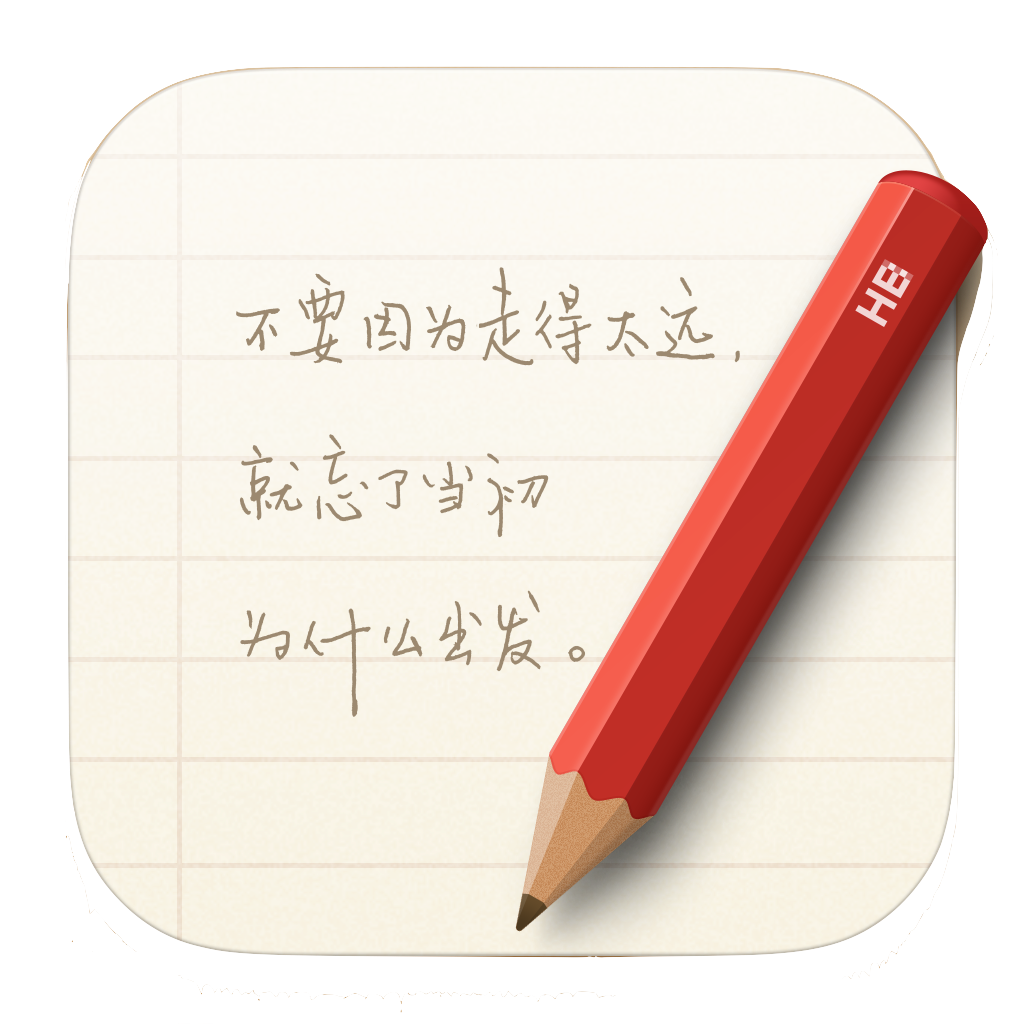 不要因为走得太远,
就忘了当初
为什么出发。
HB